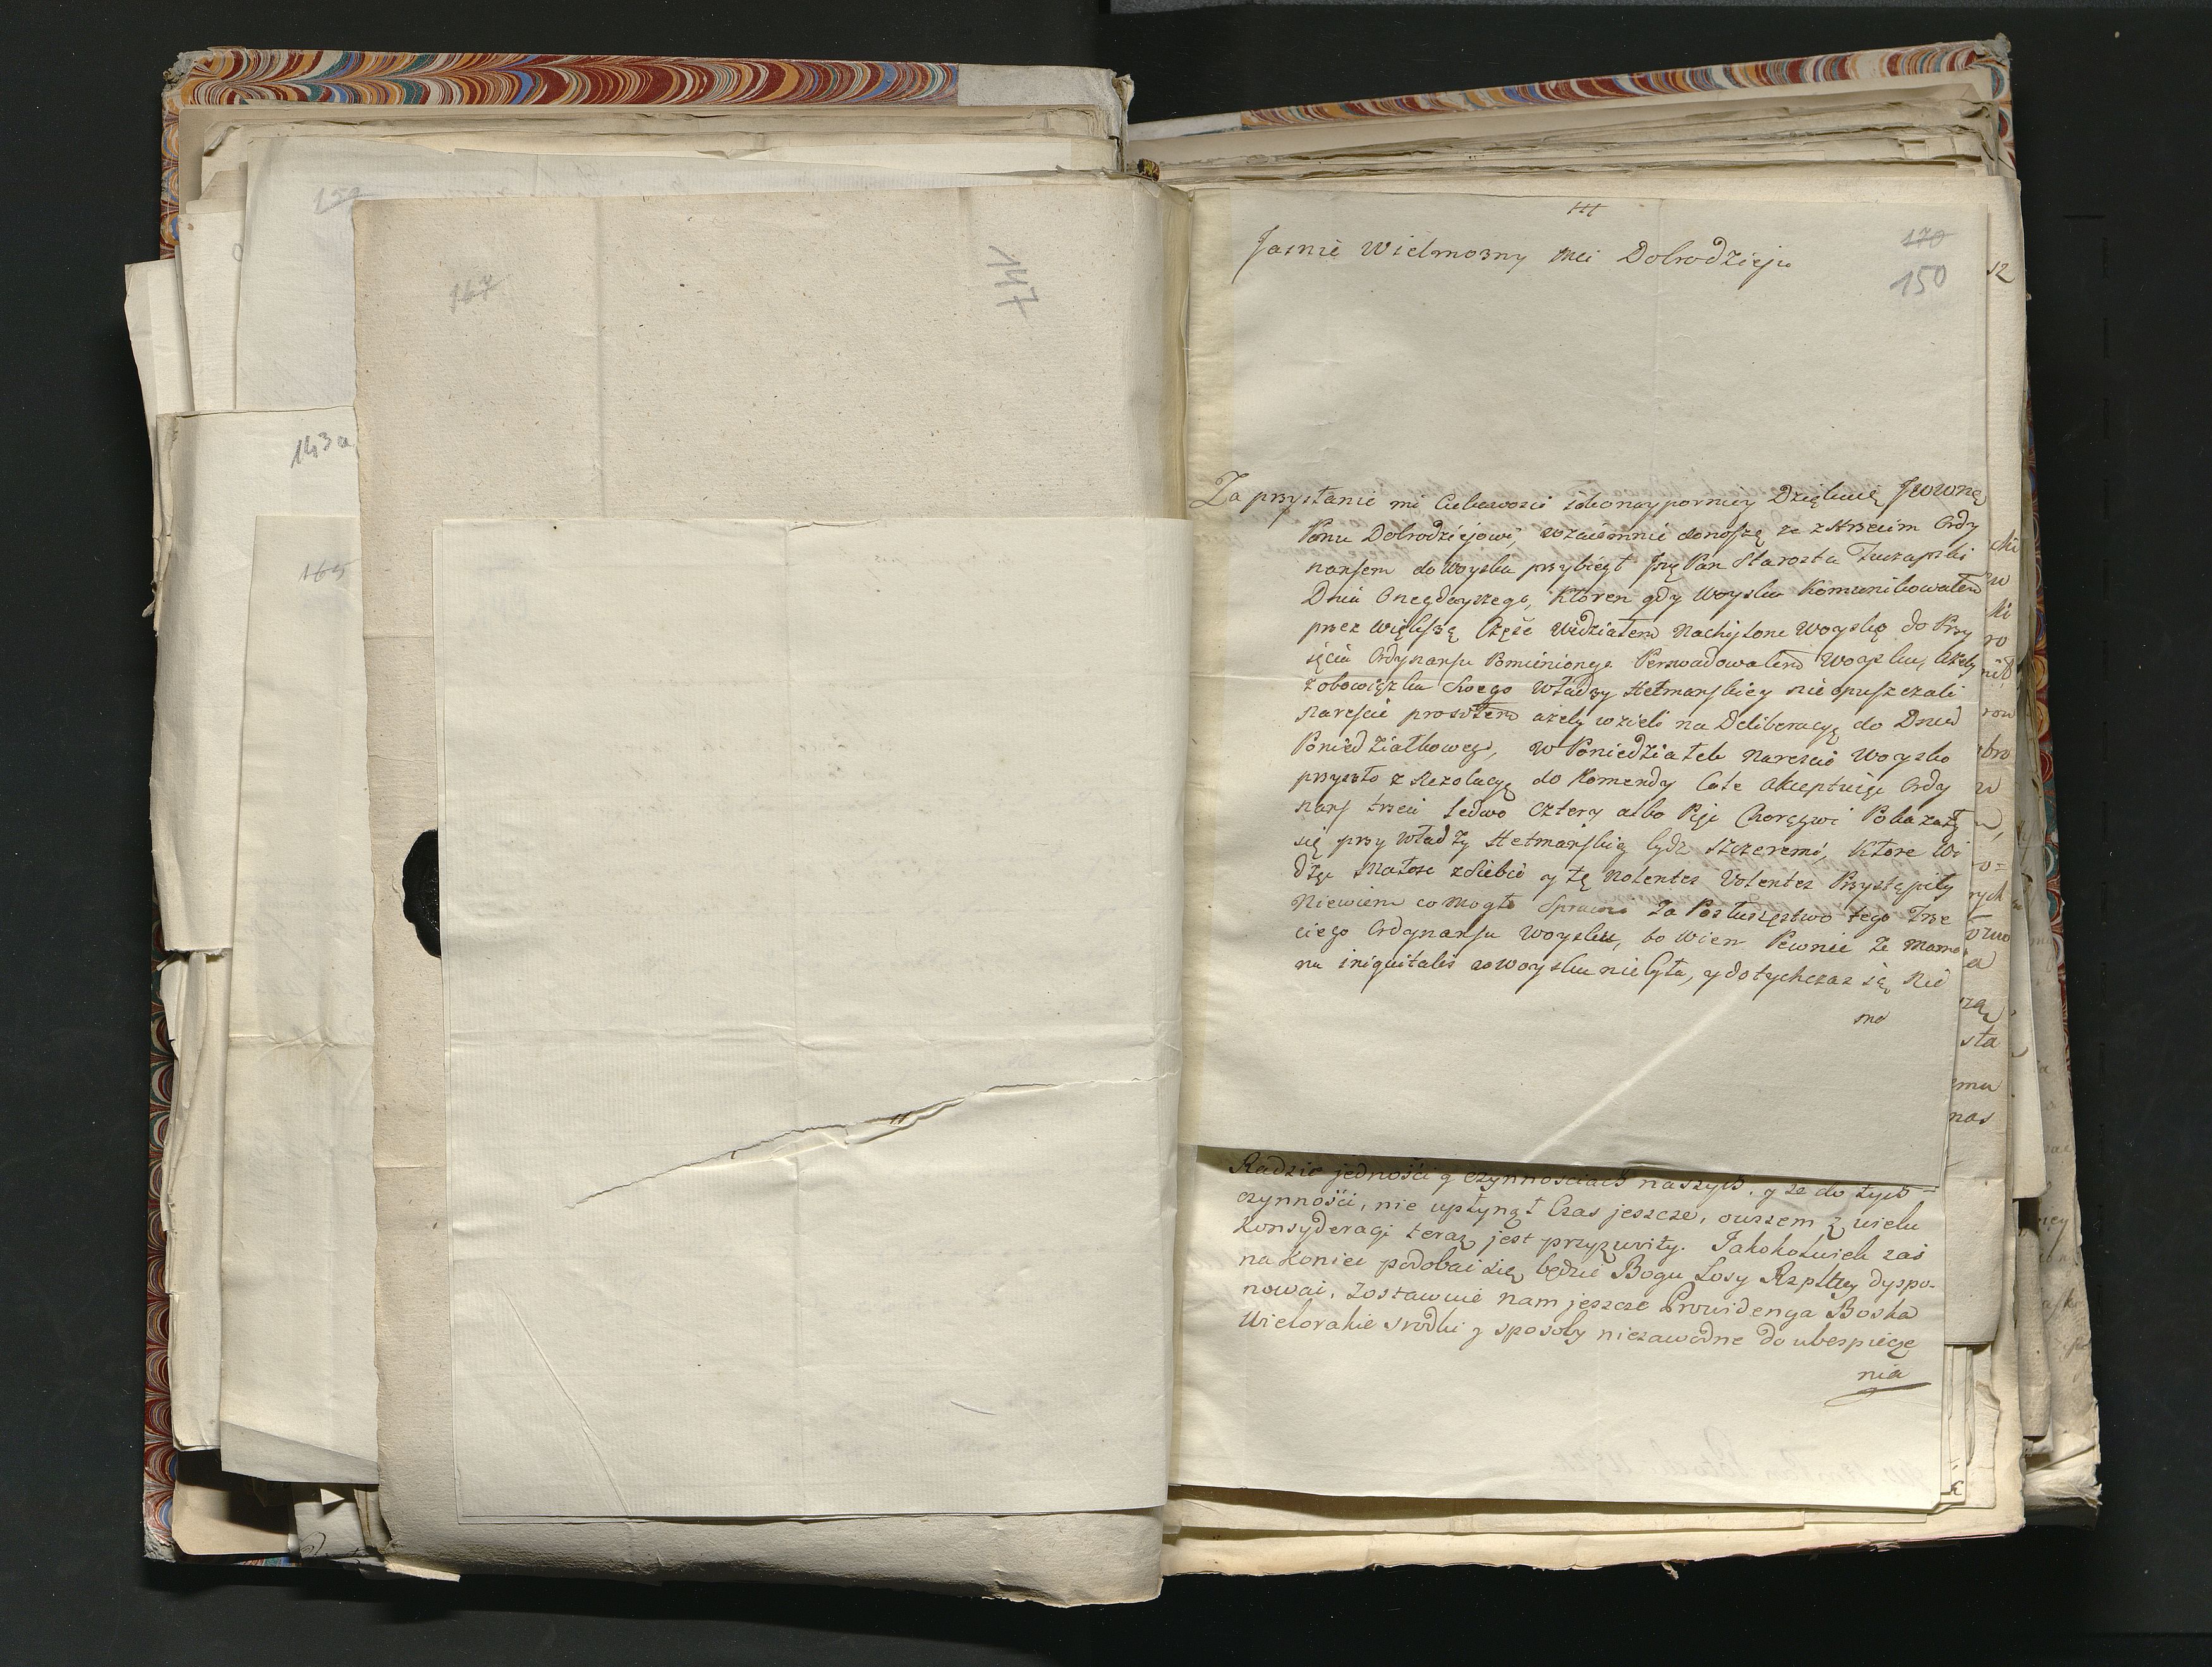 150
167
147
143a
165
III
170
150
Jasnie Wielmozny Mci Dobrodzieju
Za przysłanie mi Ciekawosci Dziękuię JWWną
Panu Dobrodziejowi, wzaiemnie donoszę ze z trzecim Ordy
nansem do Woyska przybiegł Jmę Pan Starosta
Dnia Onegdayszego, Ktoren gdy Woysku Komunikowałem
przez większą Częśc Widziałem Nachylone Woysko do Przy
ięcia Ordynansu Pomienionego Perswadowałem Woysku, ażeby
z obowiązku Swego Władzy Hetmanskiey nie opuszczali
nareszcie prosiłem ażeby wzieli na Deliberacyą do Dnia
Poniedziałkowego, w Poniedziałek Nareszcie Woysko
przyszło z Rezolucyą do Komendy Całe akceptuiąc Ordy
nans trzeci ledwo Cztery albo Pięc Chorągwi Pokazały
się przy Władzy Hetmanskiey bydz szczeremi, Ktore Wi
dząc Małosc z Siebie y te Nolentes Volentes Przystąpiły
Niewiem co Mogło Sprawic Za Posłuszęstwo tego Trze
ciego Ordynansu Woysku, bo Wiem Pewnie Ze Mamo
na iniquitatis w Woysku nie była, y dotychczas się Nie
ma
Radzie jednośći y czynnosciach naszych, y ze do tych
czynnośći, nie upłynął Czas jeszcze, owszem z wielu
Konsyderacyi teraz jest przyzwoity. Jakokolwiek zas
na Koniec podobac się będzie Bogu Losy Rzpltey dyspo-
nowac, Zostawuie nam jeszcze Prowidencya Boska
Wielorakie srodki y sposoby niezawodne do ubespiecze
nia
sta
emu
nas